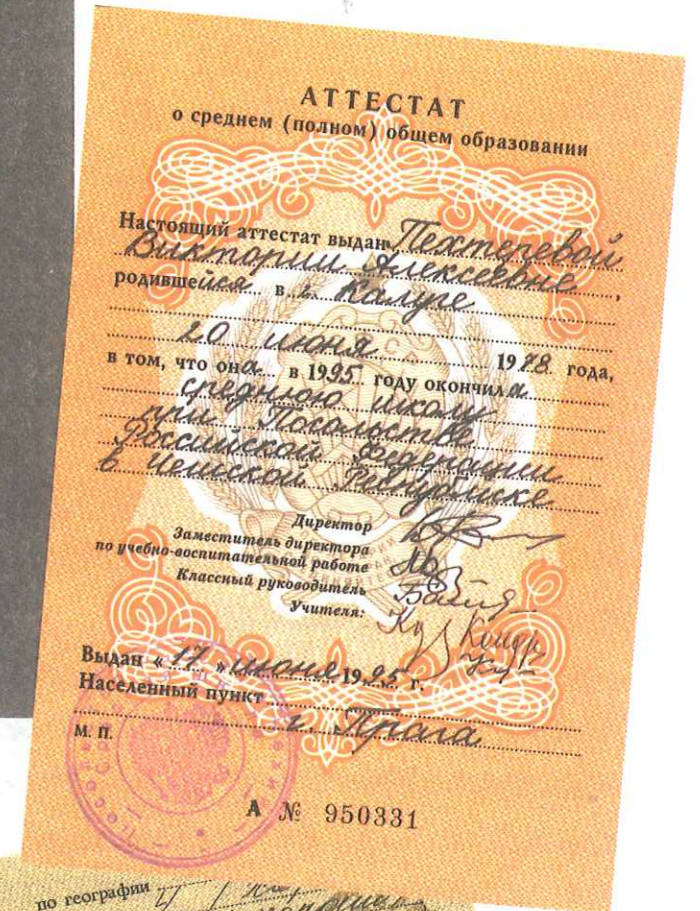 АТТЕСТАТ
о среднем (полном) общем образовании
Настоящий аттестат выдан Пехтеревой
Виктории Алексеевне,
родившейся в г. Калуге
20 июня 1978 года,
в том, что она в 1995 году окончила
среднюю школу
при Посольстве
Российской Федерации
в Чешской Республике
Директор
Заместитель директора
по учебно-воспитательной работе
Классный руководитель
Учителя:
Выдан « 17 » июня 1995 г.
Населенный пункт
г. Прага
М. П.
А № 950331
по географии